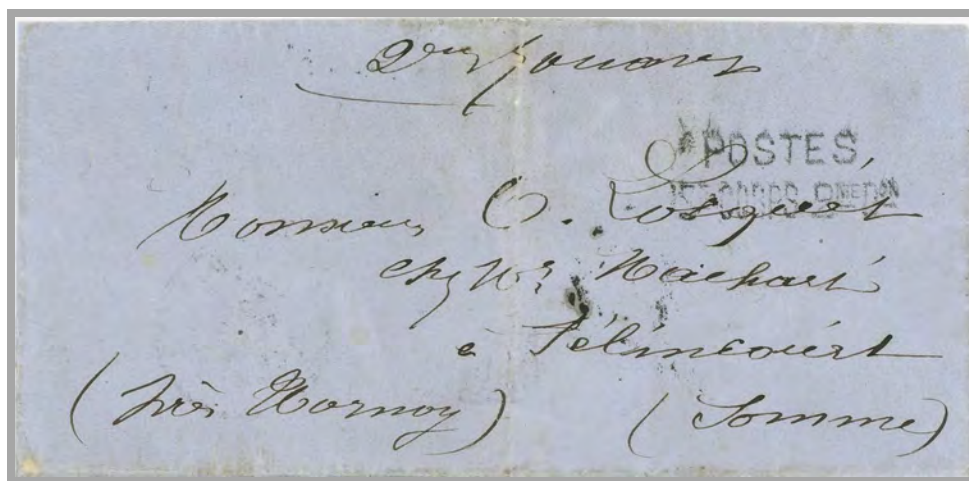 POSTES
1ER CORPS 2ME DON
Monsieur O. Losquet
chez Mr Machart
à Télincourt
(près Hornoy) (Somme)